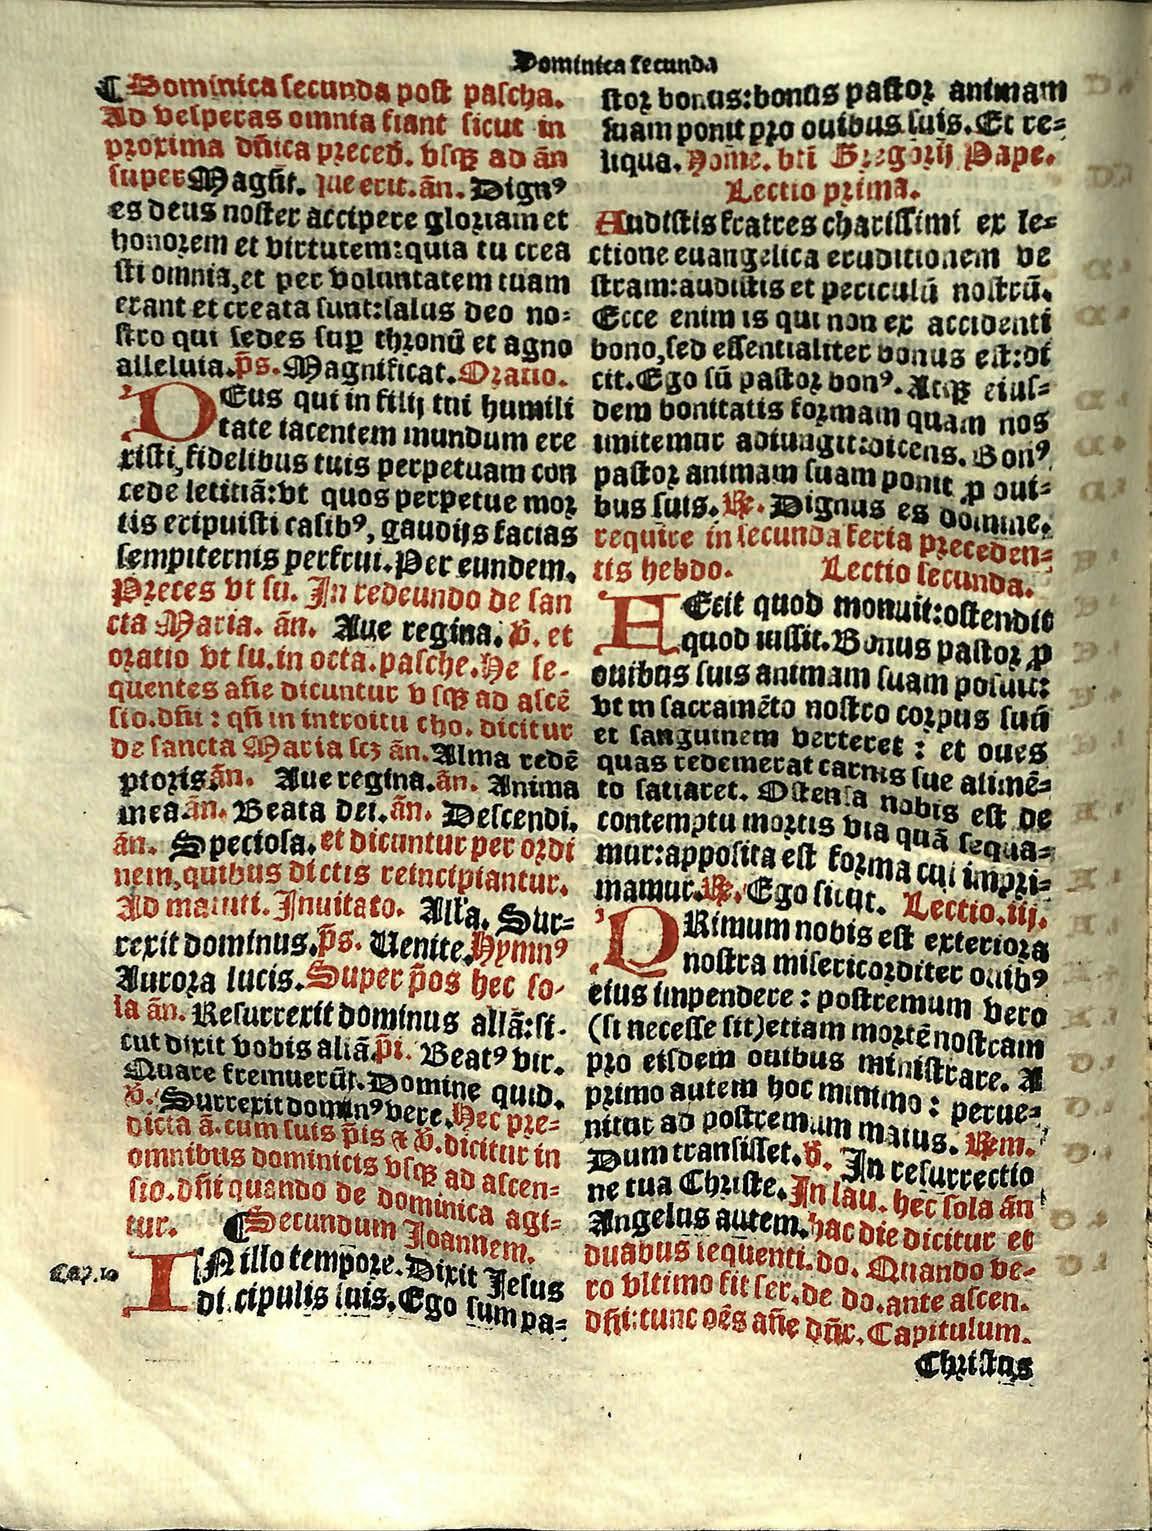 Dominica secunda
¶Dominica secunda post pascha.
Ad vesperas omnia fiant sicut in
proxima dn̄ica preced̄. vsqꝫ ad ān
super Magn̄t. que erit. ān. Dignꝰ
es deus noster accipere gloriam et
honorem et virtutem:quia tu crea
sti omnia,et per voluntatem tuam
erant et creata sunt:salus deo no=
stro qui sedes suꝑ thronū et agno
alleluia.p̄s.Magnificat.Oratio.
DEus qui in filij tui humili
tate iacentem mundum ere
xisti,fidelibus tuis perpetuam con
cede letitiā:vt quos perpetue mor
tis eripuisti casibꝰ, gaudijs facias
sempiternis perfrui.Per eundem.
Preces vt su. In redeundo de san
cta Maria. ān. Aue regina.℣. et
oratio vt su.in octa.pasche.He se-
quentes an̄e dicuntur vsqꝫ ad ascē
sio.dn̄i : qn̄ in introitu cho. dicitur
de sancta Maria scꝫ ān.Alma redē
ptoris.ān. Aue regina.ān. Anima
mea.ān. Beata dei.ān. Descendi.
ān. Speciosa.et dicuntur per ordi
nem,quibus dictis reincipiantur.
Ad matuti. Inuitato. All'a. Sur=
rexit dominus.p̄s. Uenite.Hymnꝰ
Aurora lucis.Super p̄os hec so-
la ān.Resurrexit dominus allā:si-
cut dixit vobis allā.p̄i. Beatꝰ vir.
Quare fremuerūt.Domine quid.
℣. Surrexit dominꝰ vere.Hec pre=
dicta ā.cum suis p̄is ⁊ ℣.dicitur in
omnibus dominicis vsqꝫ ad ascen=
sio.dn̄i quando de dominica agi=
tur. ¶Secundum Joannem.
Cap.10
IN illo tempore.Dixit Jesus
discipulis suis.Ego sum pa=
stor bonus:bonus pastor animam
suam ponit pro ouibus suis.Et re=
liqua.Home. bti Gregorij Pape.
Lectio prima.
Audistis fratres charissimi ex le=
ctione euangelica eruditionem ve
stram:audistis et periculū nostrū.
Ecce enim is qui non ex accidenti
bono,sed essentialiter bonus est:di
cit.Ego sū pastor bonꝰ.Atqꝫ eius=
dem bonitatis formam quam nos
imitemur adiungit:dicens.Bonꝰ
pastor animam suam ponit ꝓ oui=
bus suis.℟. Dignus es domine.
require in secunda feria preceden=
tis hebdo. Lectio secunda.
FEcit quod monuit:ostendit
quod iussit.Bonus pastor ꝓ
ouibus suis animam suam posuit:
vt in sacramēto nostro corpus suū
et sanguinem verteret : et oues
quas redemerat carnis sue alimē=
to satiaret. Ostensa nobis est de
contemptu mortis via quā sequa=
mur:apposita est forma cui impri=
mamur.℟. Ego sicut. Lectio.iij.
PRimum nobis est exteriora
nostra misericorditer ouibꝰ
eius impendere : postremum vero
(si necesse sit)etiam mortē nostram
pro eisdem ouibus ministrare. A
primo autem hoc minimo : perue=
nitur ad postremum maius. ℟em.
Dum transisset.℣. In resurrectio
ne tua Christe.In lau. hec sola ān
Angelus autem.hac die dicitur et
duabus sequenti.do. Quando ve-
ro vltimo fit ser.de do.ante ascen.
dn̄i:tunc oēs an̄e dn̄r. Capitulum.
Christus